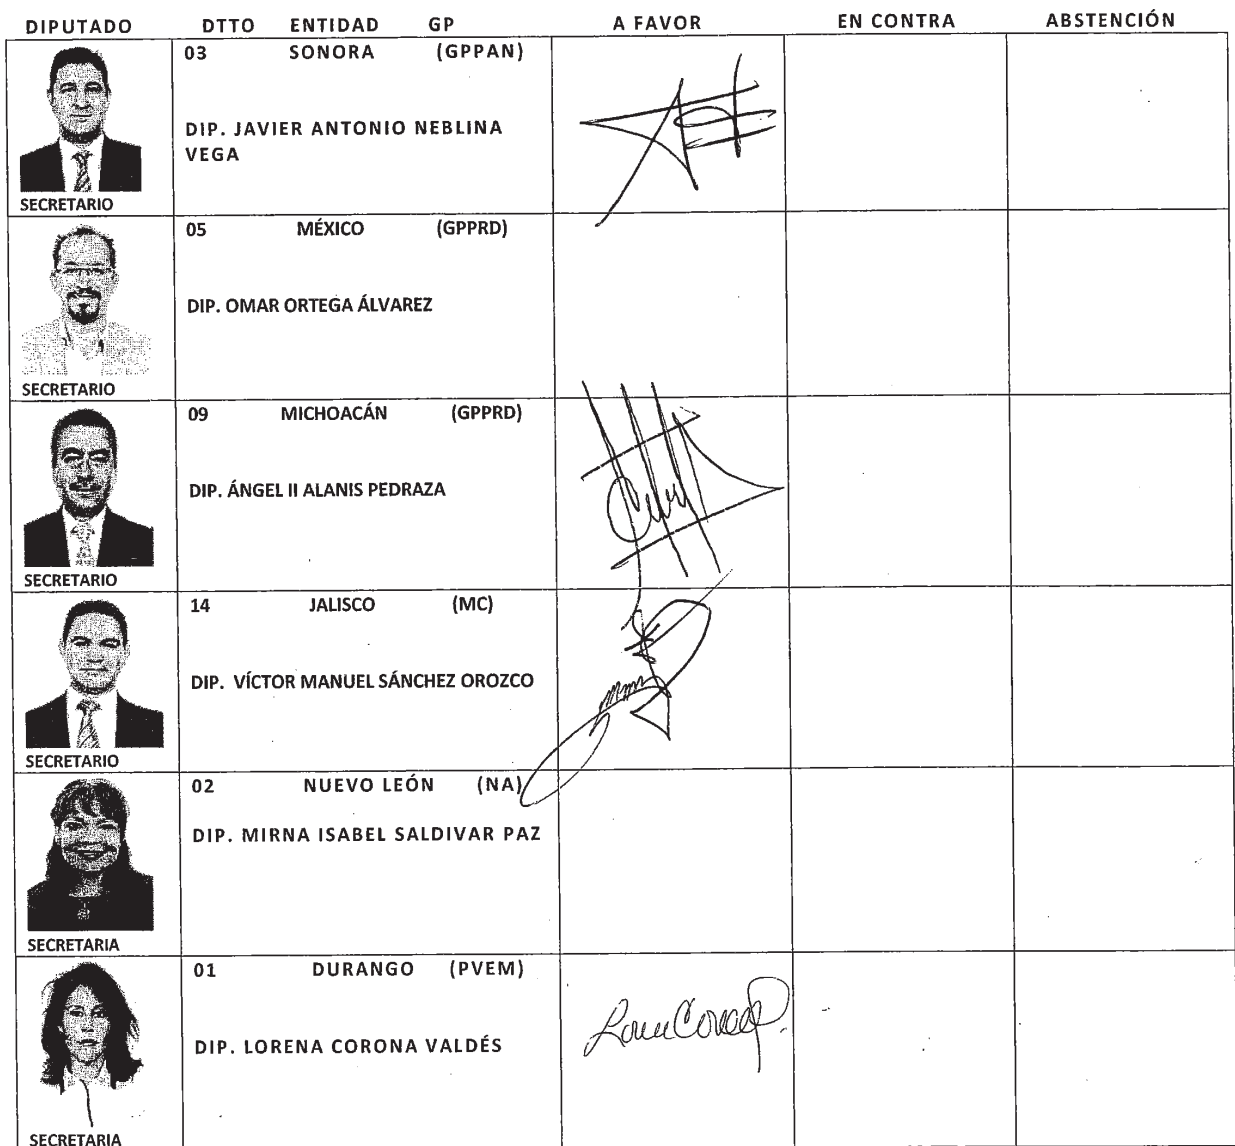 DIPUTADO DTTO ENTIDAD GP A FAVOR EN CONTRA ABSTENCIÓN
03 SONORA (GPPAN)
DIP. JAVIER ANTONIO NEBLINA
VEGA
SECRETARIO
05 MÉXICO (GPPRD)
DIP. OMAR ORTEGA ÁLVAREZ
SECRETARIO
09 MICHOACÁN (GPPRD)
DIP. ÁNGEL II ALANIS PEDRAZA
SECRETARIO
14 JALISCO (MC)
DIP. VÍCTOR MANUEL SÁNCHEZ OROZCO
SECRETARIO
02 NUEVO LEÓN (NA)
DIP. MIRNA ISABEL SALDIVAR PAZ
SECRETARIA
01 DURANGO (PVEM)
DIP. LORENA CORONA VALDÉS
SECRETARIA